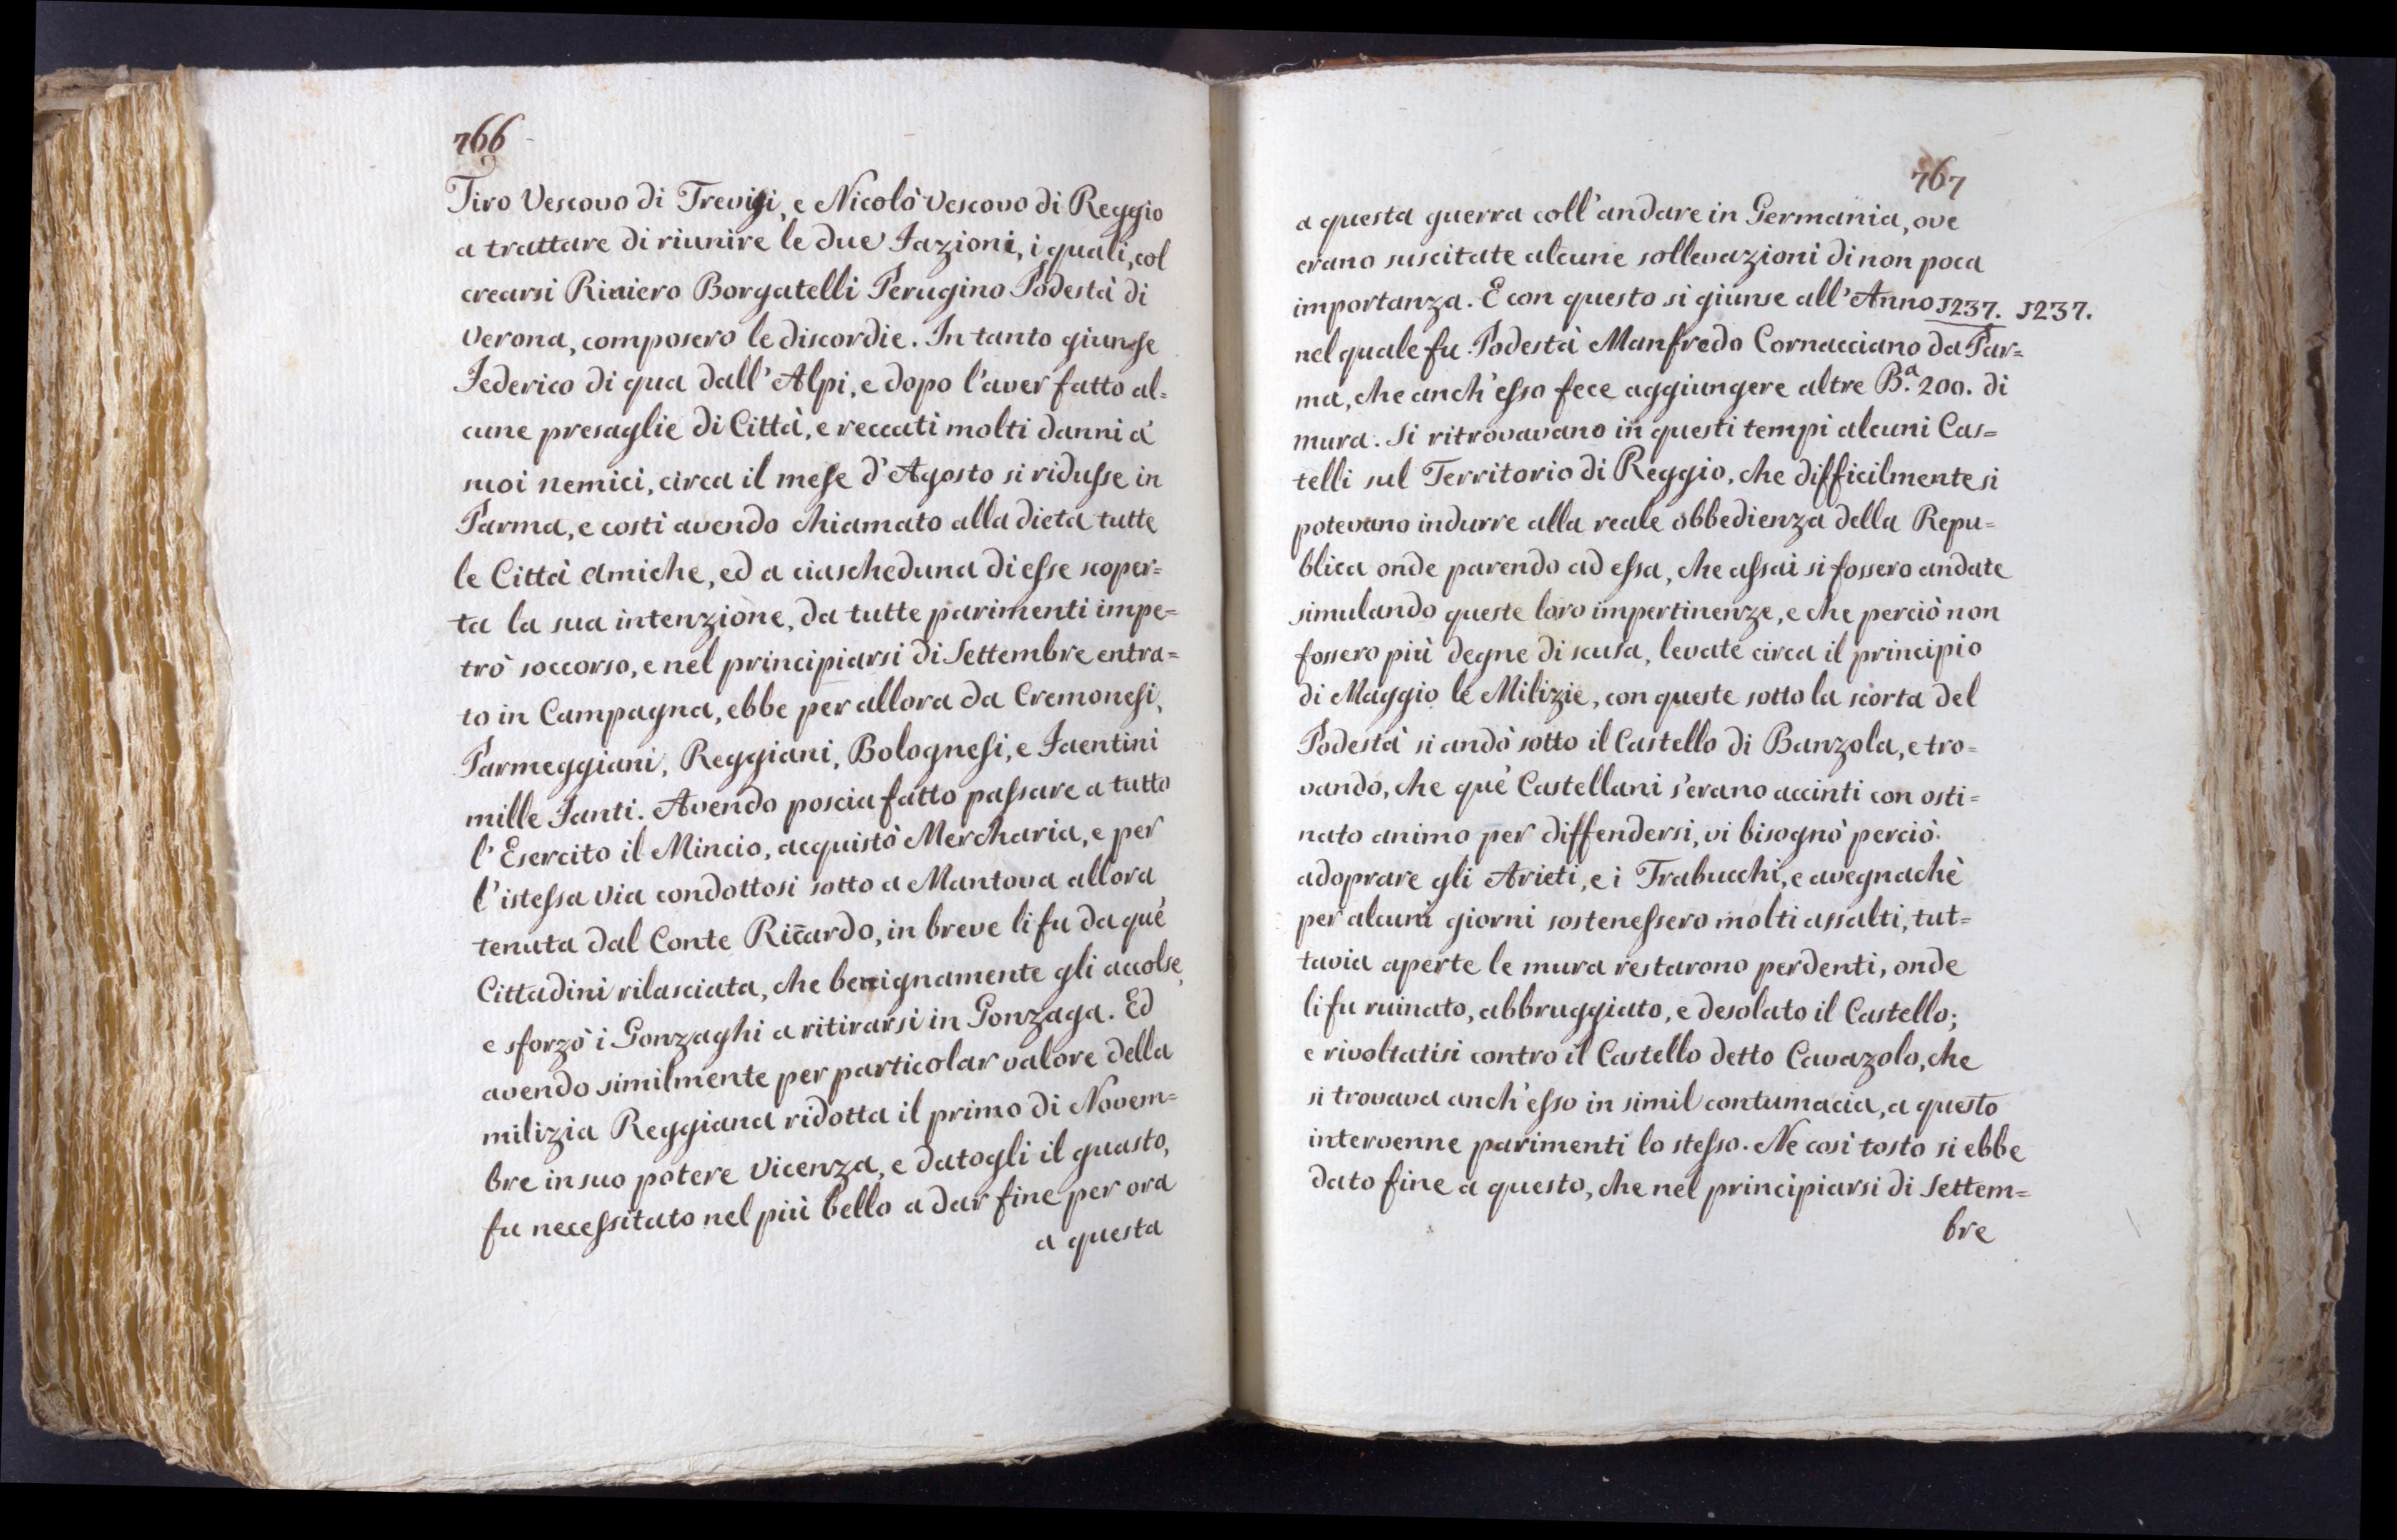 766
Tiro Vescovo di Trevigi, e Nicolò Vescovo di Reggio
a trattare di riunire le due Fazioni, i quali, col
crearsi Riniero Borgatelli Perugino Podestà di
Verona, composero le discordie. In tanto giunse
Federico di qua dall'Alpi, e dopo l'aver fatto al=
cune presaglie di Città, e reccati molti danni a'
suoi nemici, circa il mese d'Agosto si ridusse in
Parma, e costì avendo chiamato alla dieta tutte
le Città Amiche, ed a ciascheduna di esse scoper=
ta la sua intenzione, da tutte parimenti impe=
trò soccorso, e nel principiarsi di Settembre entra=
to in Campagna, ebbe per allora da Cremonesi,
Parmeggiani, Reggiani, Bolognesi, e Faentini
mille Fanti. Avendo poscia fatto passare a tutto
l'Esercito il Mincio, acquistò Mercharia, e per
l'istessa via condottosi sotto a Mantova allora
tenuta dal Conte Riccardo, in breve li fu da que'
Cittadini rilasciata, che benignamente gli accolse,
e sforzò i Gonzaghi a ritirarsi in Gonzaga. Ed
avendo similmente per particolar valore della
milizia Reggiana ridotta il primo di Novem=
bre in suo potere Vicenza, e datogli il guasto,
fu necessitato nel più bello a dar fine per ora
a questa
767
a questa guerra coll'andare in Germania, ove
erano suscitate alcune sollevazioni di non poca
importanza. E con questo si giunse all'Anno 1237. 1237.
nel quale fu Podestà Manfredo Cornacciano da Par=
ma, che anch'esso fece aggiungere altre B.ª 200. di
mura. Si ritrovavano in questi tempi alcuni Cas=
telli sul Territorio di Reggio, che difficilmente si
potevano indurre alla reale obbedienza della Repu=
blica onde parendo ad essa, che assai si fossero andate
simulando queste loro impertinenze, e che perciò non
fossero più degne di scusa, levate circa il principio
di Maggio le Milizie, con queste sotto la scorta del
Podestà si andò sotto il Castello di Banzola, e tro=
vando, che que' Castellani s'erano accinti con osti=
nato animo per diffendersi, vi bisognò perciò
adoprare gli Arieti, e i Trabucchi, e avegnachè
per alcuni giorni sostenessero molti assalti, tut=
tavia aperte le mura restarono perdenti, onde
li fu ruinato, abbruggiato, e desolato il Castello;
e rivoltatisi contro il Castello detto Cavazolo, che
si trovava anch'esso in simil contumacia, a questo
intervenne parimenti lo stesso. Ne così tosto si ebbe
dato fine a questo, che nel principiarsi di Settem=
bre